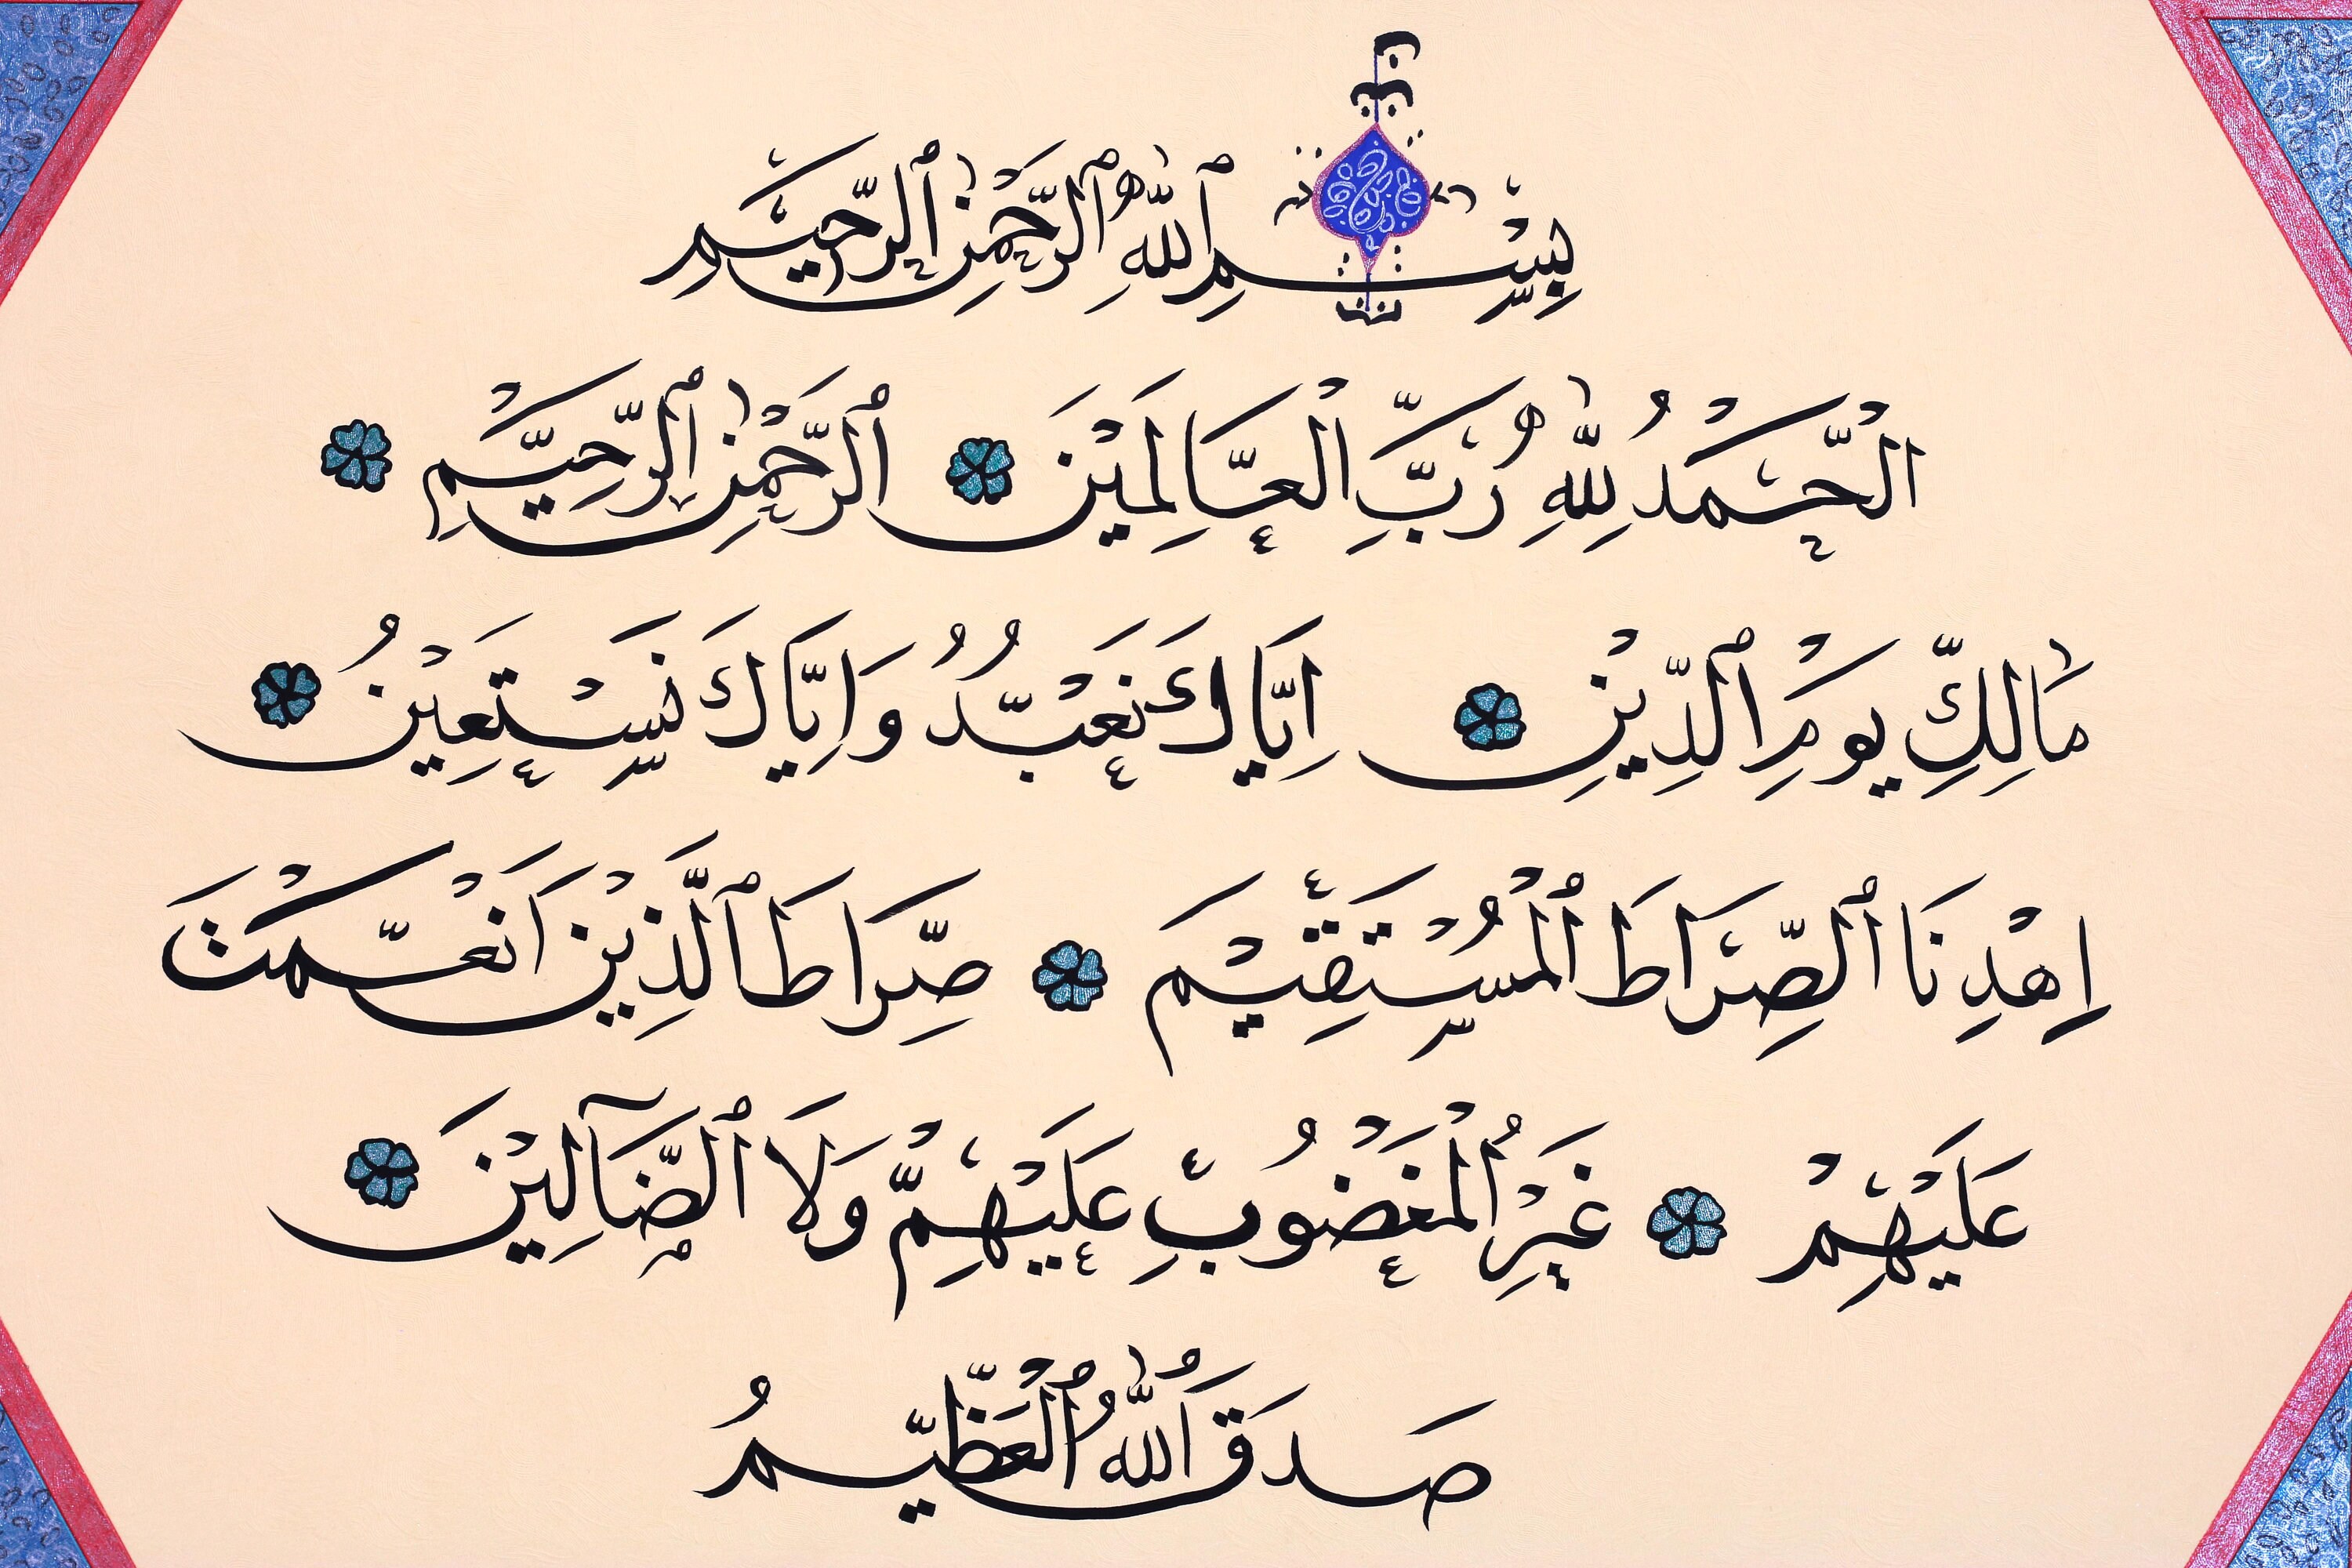 بِسْمِ ٱللّٰهِ ٱلرَّحْمٰنِ ٱلرَّحِيْمِ
الْحَمْدُ لِلّٰهِ رَبِّ الْعَالَمِيْنَ ۞ ٱلرَّحْمٰنِ ٱلرَّحِيْمِ ۞
مَالِكِ يَوْمِ ٱلدِّيْنِ ۞ اِيَّاكَ نَعْبُدُ وَاِيَّاكَ نَسْتَعِيْنُ ۞
اِهْدِنَا ٱلصِّرَاطَ ٱلْمُسْتَقِيْمَ ۞ صِرَاطَ ٱلَّذِيْنَ اَنْعَمْتَ
عَلَيْهِمْ ۞ غَيْرِ الْمَغْضُوبِ عَلَيْهِمْ وَلَا ٱلضَّآلِيْنَ ۞
صَدَقَ اللّٰهُ ٱلْعَظِيْمُ